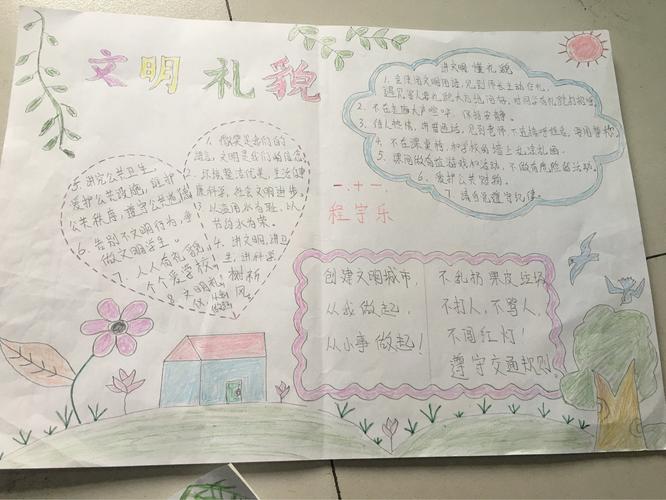 文明礼貌
1. 微笑是我们的
语言，文明是我们的信念
2. 环境整洁优美，生活健
康科学，社会文明进步。
3. 以
为耻，以
节约水为荣。
4. 讲文明，讲卫
生，讲科学，
树新
风。
5. 讲究公共卫生，
爱护公共设施，维护
公共秩序，遵守公共道德
6. 告别不文明行为，争
做文明学生。
7. 人人有礼貌，
个个爱学校。
8. 文明礼
讲文明 懂礼貌
1. 会使用文明用语，见到师长主动行礼，
遇见客人有礼貌大方地问好，
2. 不在走廊大声喧哗，保持安静。
3. 待人热情，讲普通话，见到老师
4. 不在课桌椅和学校的墙上乱涂乱画。
5. 课间做有益游戏和活动，不做有危险的活动。
6. 爱护公共财物。
7. 请自觉遵守纪律
一.十一
程宇乐
创建文明城市，
从我做起，
从小事做起！
不乱扔果皮垃圾
不打人，不骂人，
不闯红灯！
遵守交通规则。